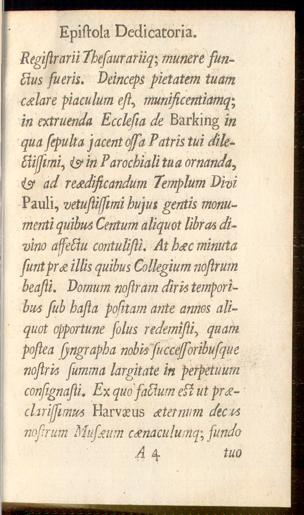 Epistola Dedicatoria.
Registrarii Thesaurariiq; munere fun-
ctus fueris. Deinceps pietatem tuam
cælare piaculum est, munificentiamq;
in extruenda Ecclesia de Barking in
qua sepulta jacent ossa Patris tui dile-
ctissimi, & in Parochiali tua ornanda,
& ad reædificandum Templum Divi
Pauli, vetustissimi hujus gentis monu-
menti quibus Centum aliquot libras di-
vino affectu contulisti. At hæc minuta
sunt præ illis quibus Collegium nostrum
beasti. Domum nostram diris tempori-
bus sub hasta positam ante annos ali-
quot opportune solus redemisti, quam
postea syngrapha nobis successoribusque
nostris summa largitate in perpetuum
consignasti. Ex quo factum est ut præ-
clarissimus Harvæus æternum decus
nostrum Musæum cænaculumq; fundo
A 4 tuo